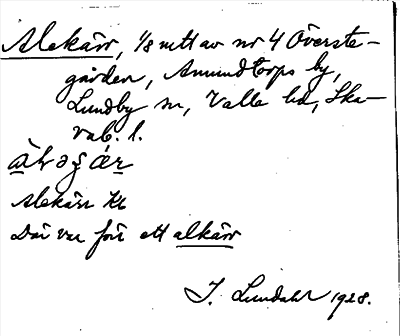 Alekärr, 1/8 mtl av nr 4 Överste-
gården, Amundtorps by,
Lundby sn, Valle hd, Ska-
rab. l.
Alekärr Kb
Där var förr ett alkärr
J. Lundahl 1928.